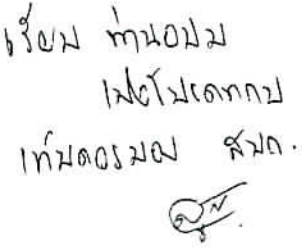 เรียน ท่านอปม
เพื่อโปรดทราบ
เห็นควรมอบ สปก.